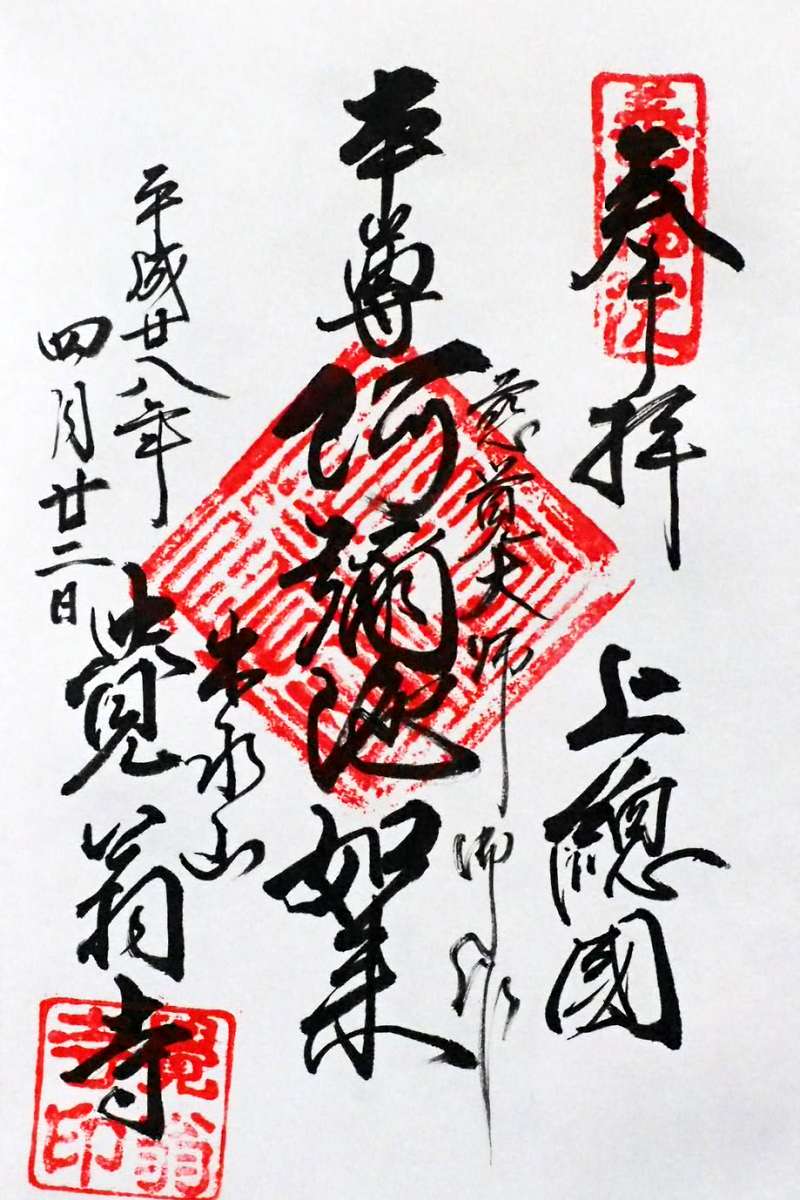 奉拝
上總國
慈覚大師御作
本尊阿彌陀如来
米永山
覚翁寺
平成廿八年
四月廿二日
覺翁寺印